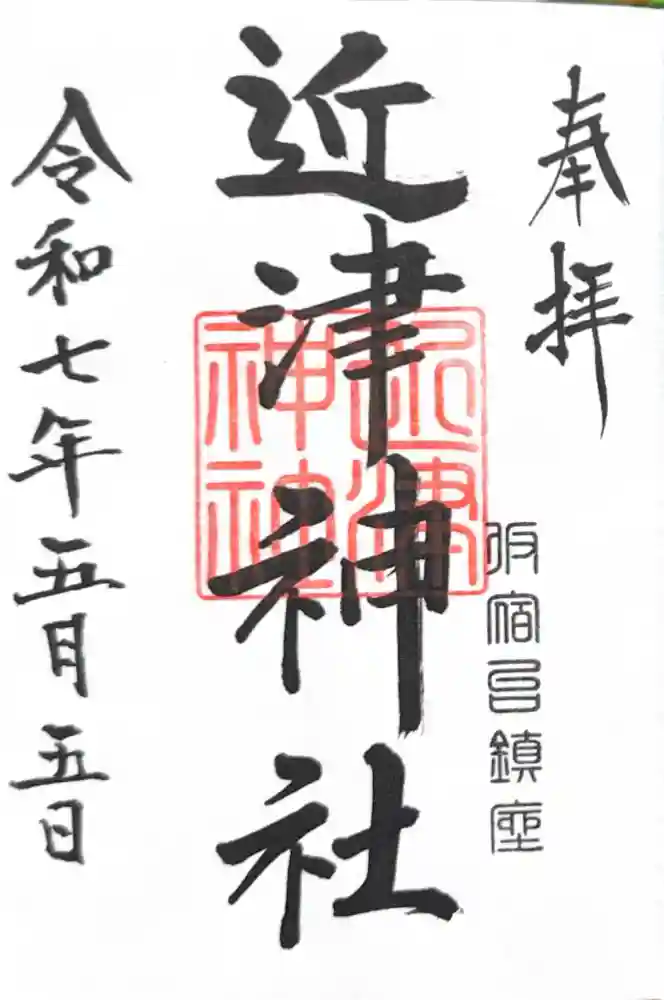 奉拝
仮宿邑鎮座
近津神社
近津神社
令和七年五月五日